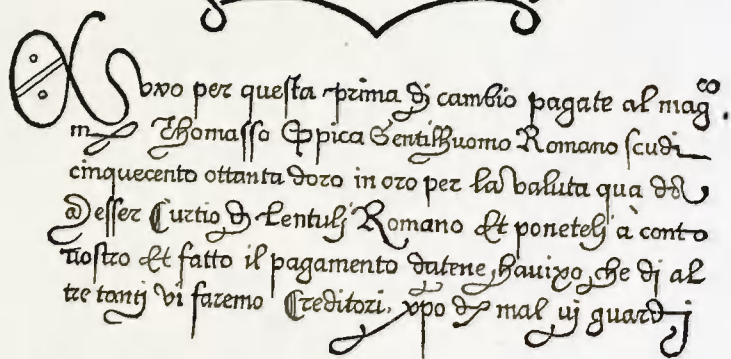 Al suo per questa prima di cambio pagate al mag.co
m. Thomasso Eppica Gentilhuomo Romano scudi
cinquecento ottanta doro in oro per la valuta qua da
Messer Curtio di Lentulj Romano et ponetelj a conto
nostro et fatto il pagamento datene havixo, che di al
tre tantj vi faremo Creditori. xpo di mal vj guardj